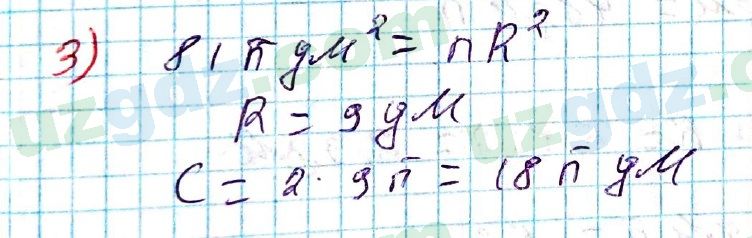 3) 81π дм² = πR²
R = 9 дм
C = 2·9π = 18π дм
uzgdz.com
uzgdz.com